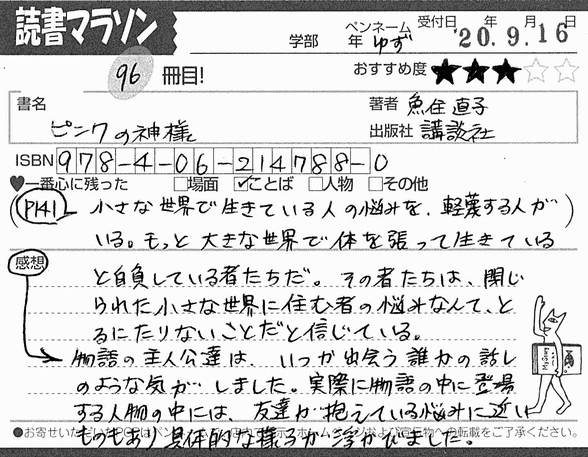 読書マラソン
学部 年 ペンネーム ゆず 受付日 年 月 日 '20.9.16
96 冊目! おすすめ度 ★★★☆☆
書名 ピンクの神様
著者 魚住 直子
出版社 講談社
ISBN 978-4-06-214788-0
♥一番心に残った □場面 ☑ことば □人物 □その他
(P141 小さな世界で生きている人の悩みを、軽蔑する人が
いる。もっと大きな世界で体を張って生きている
と自負している者たちだ。その者たちは、閉じ
られた小さな世界に住む者の悩みなんて、と
るにたりないことだと信じている。)
感想
物語の主人公達は、いつか出会う誰かの話し
のような気がしました。実際に物語の中に登場
する人物の中には、友達が抱えている悩みに近い
ものもあり具体的な様子が浮かびました。
●お寄せいただいたPOPはペンネーム
ホームページおよび
への転載をご了承ください。